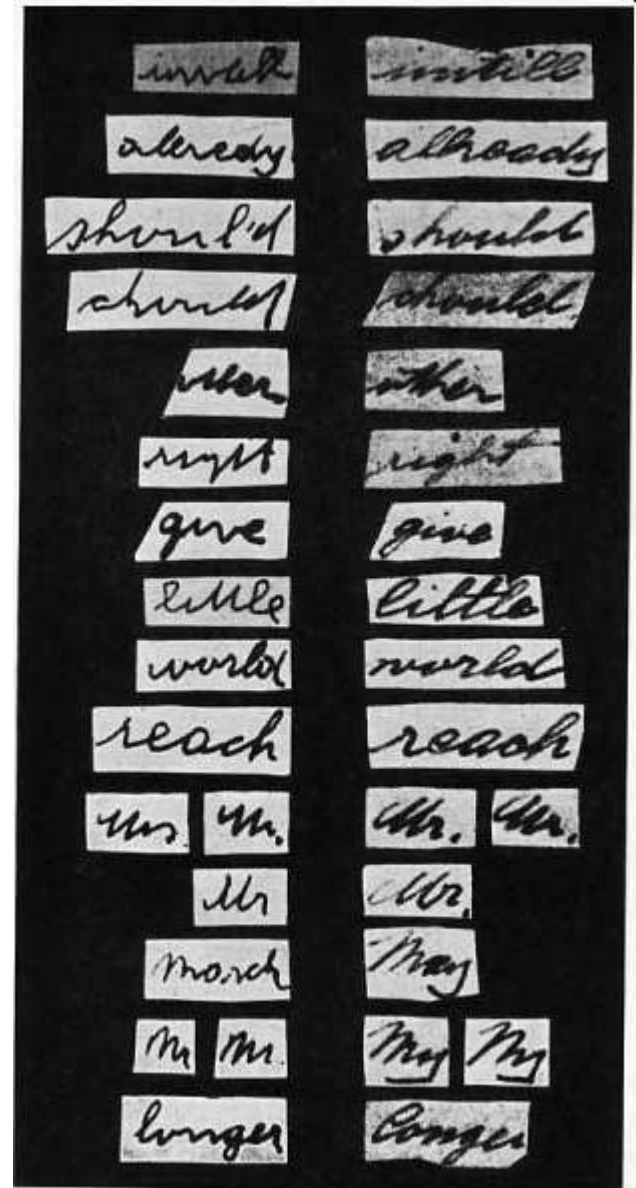 untill
alredy allready
should should
should should
other other
right right
give give
little little
world world
reach reach
Mrs. Mr. Mr. Mr.
Mr Mr.
March May
Mr Mr. My My
longer longer